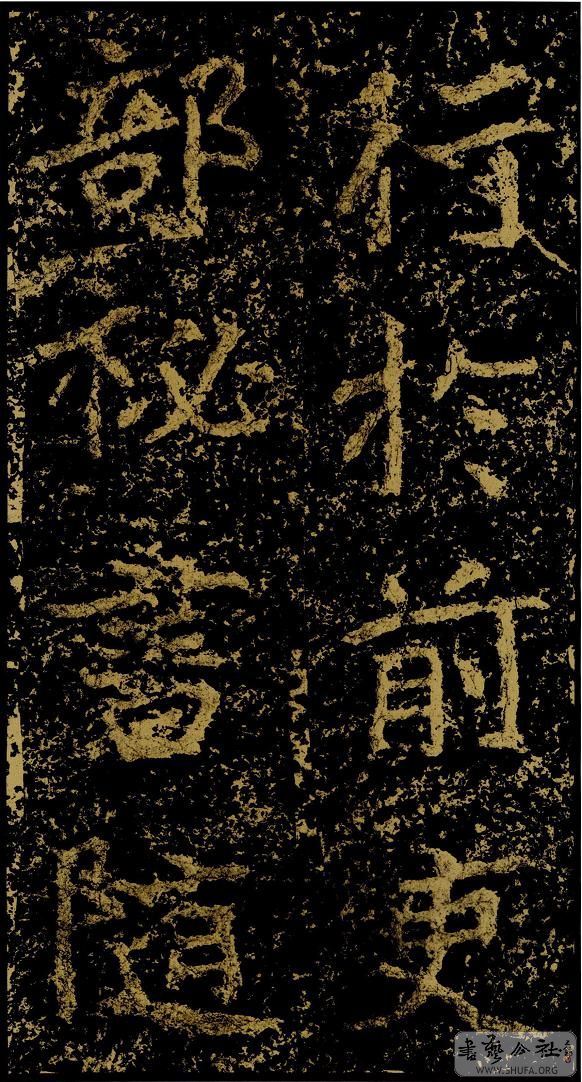 行於前吏
部秘書隨
書藝公社
WWW.SHUFA.ORG